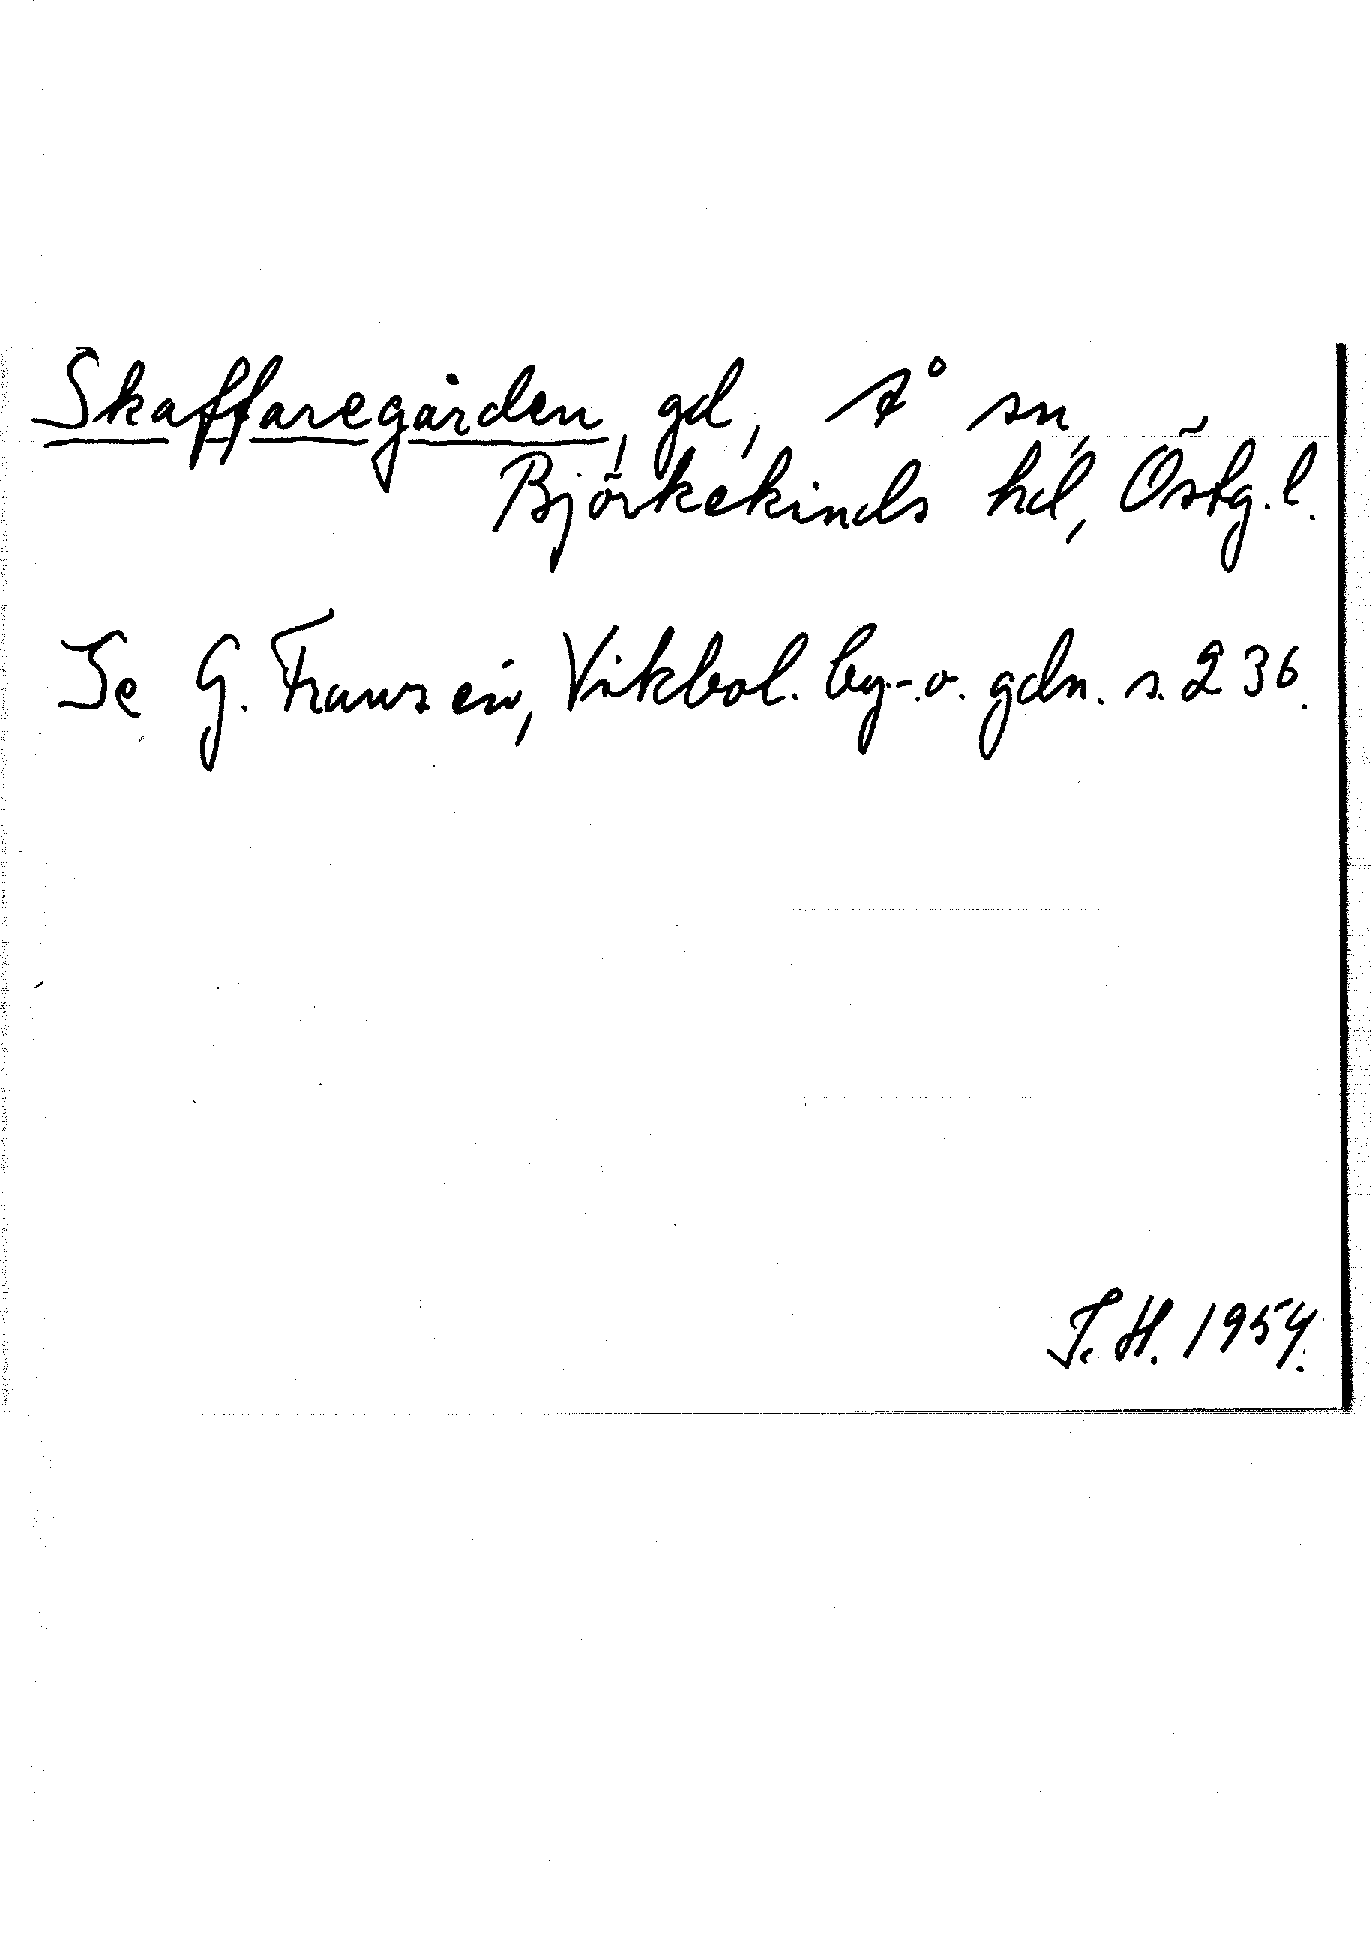 Skaffaregården, gd, Å sn,
Björkekinds hd, Östg. l.
Se G. Franzén, Vikbol. by- o. gdn. s. 236.
T. H. 1954.